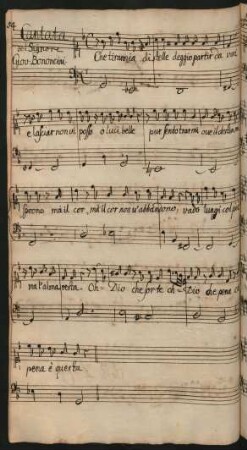 Cantata
del Signore
Giov: Bononcini
Che tirannia di stelle deggio partir da voi
e lasciar non vi posso o luci belle pur
ma il cor, ma il cor non v'abbandono, vado lungi col
ma l'alma resta. Oh Dio che sorte oh Dio che pena
pena è questa